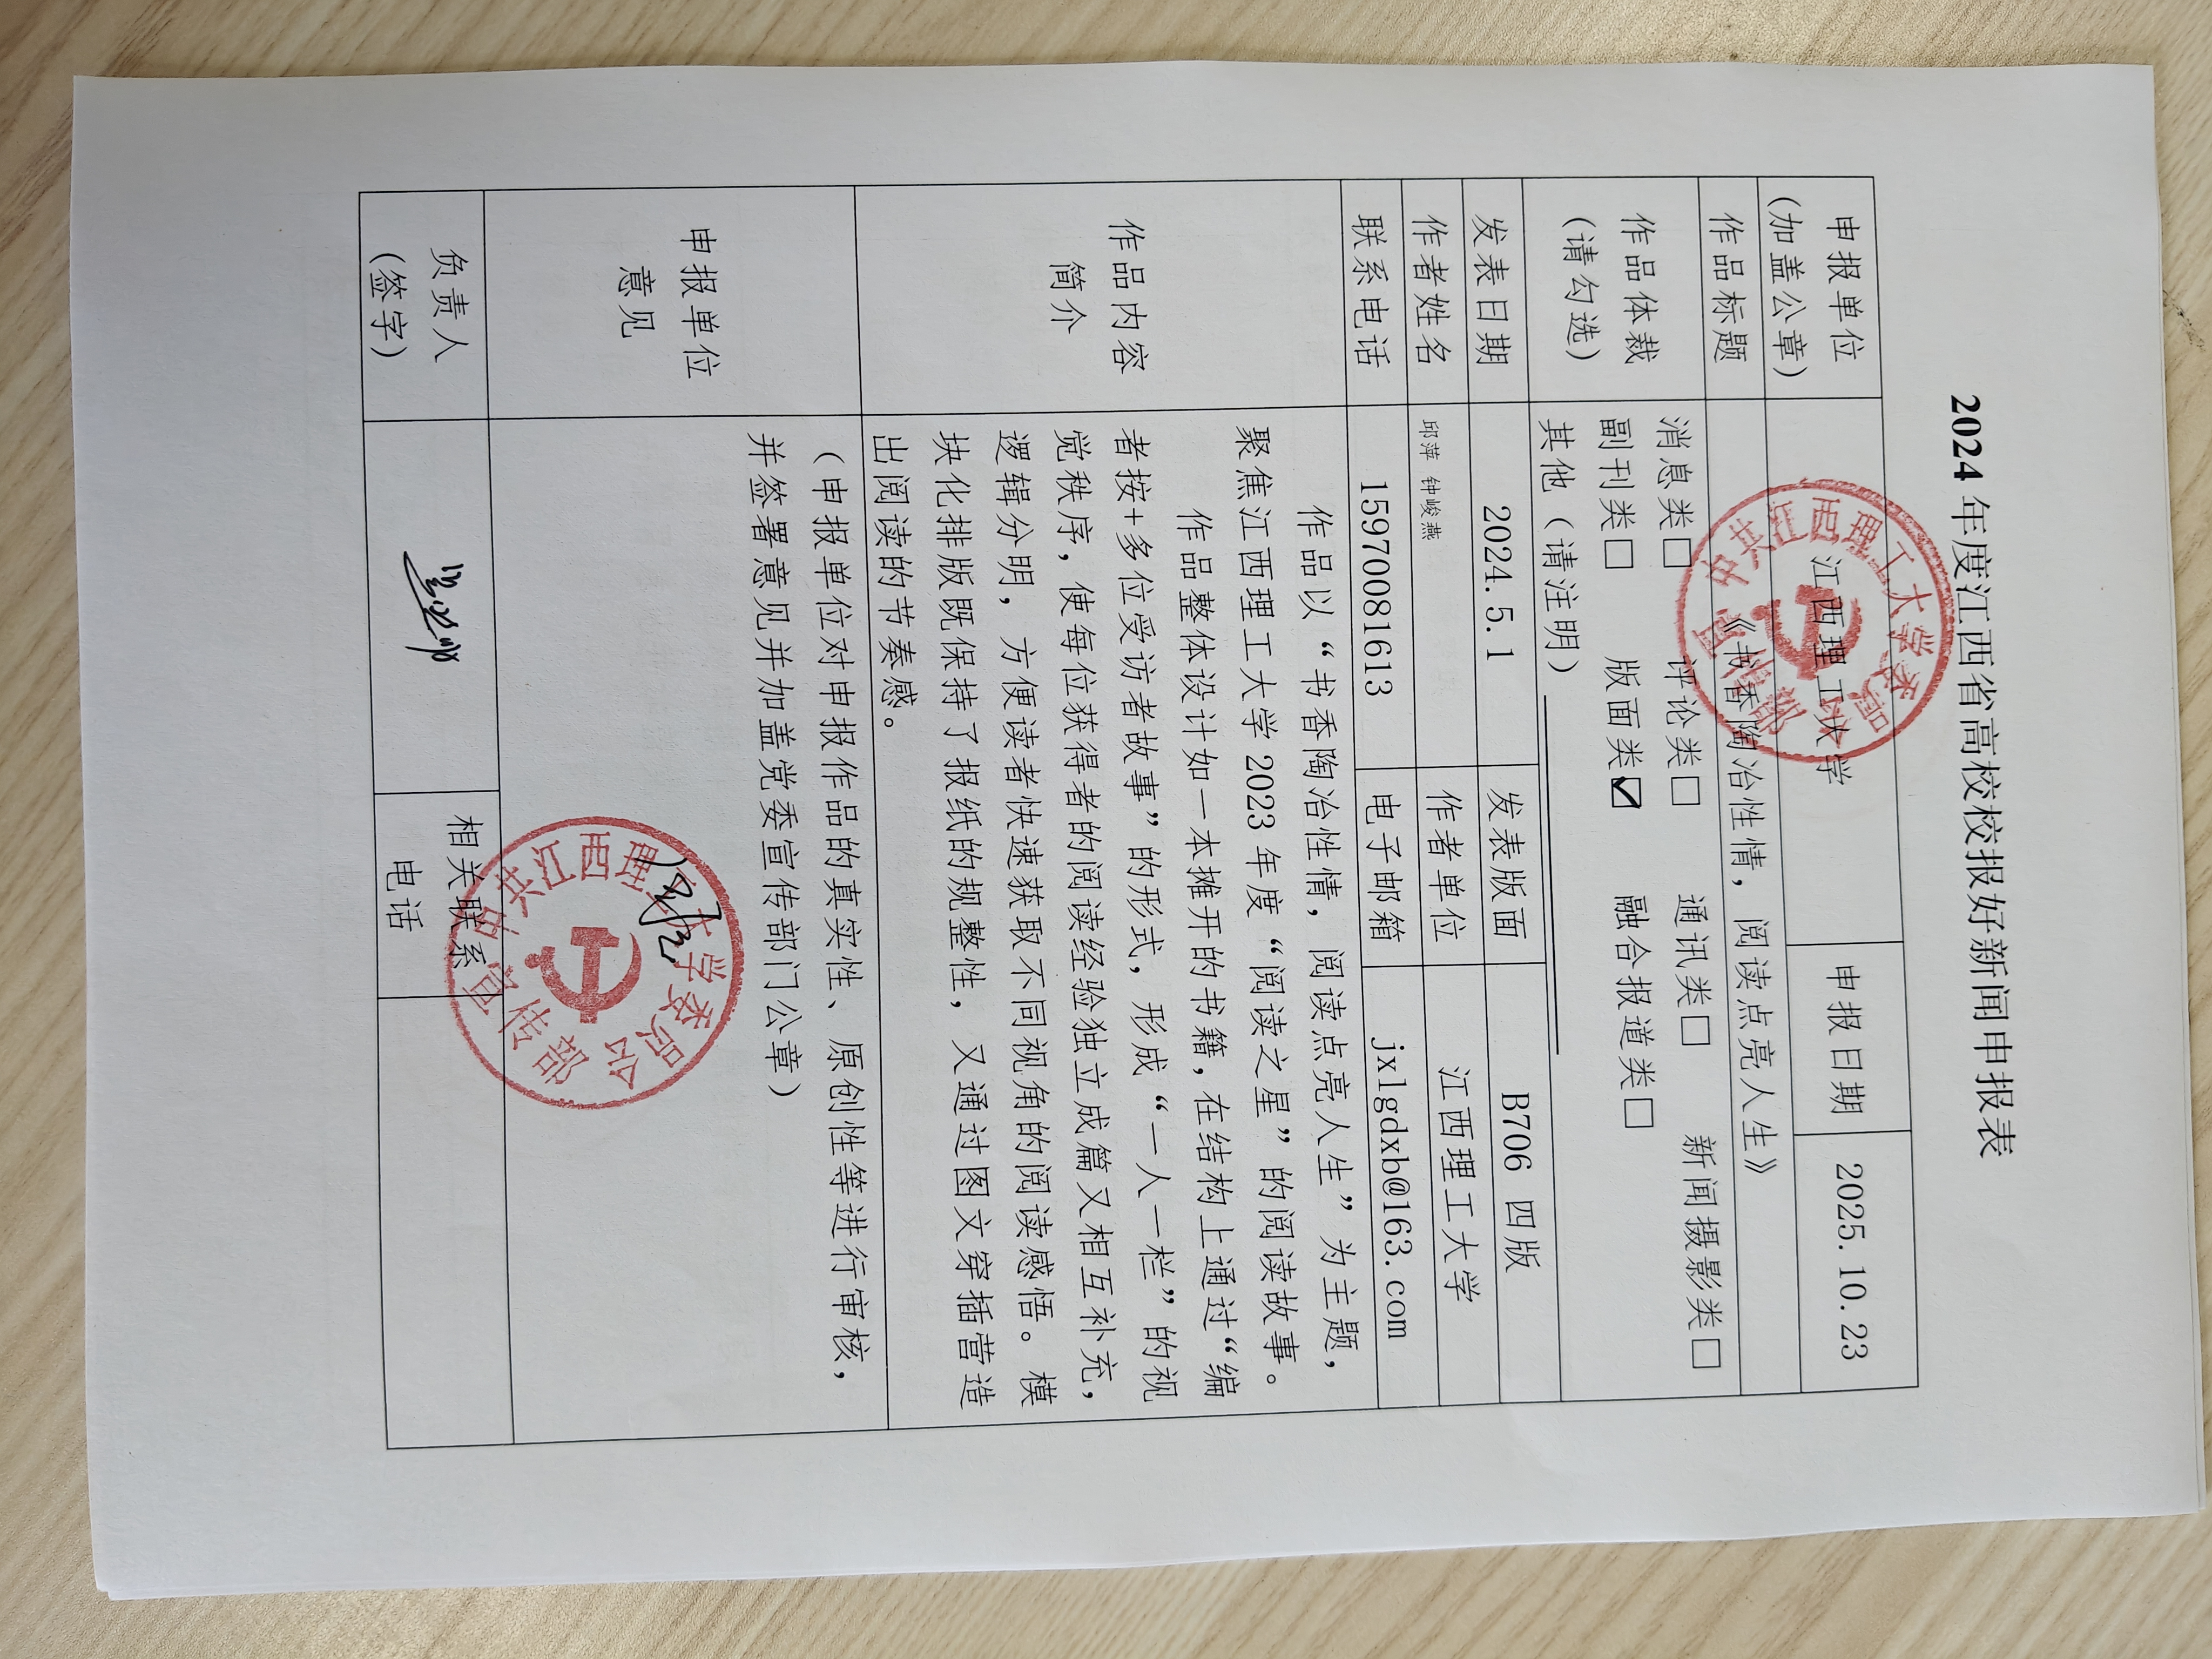 2024年度江西省高校校报好新闻申报表
申报单位
(加盖公章)
江西理工大学
申报日期
2025.10.23
作品标题
《书香陶冶性情，阅读点亮人生》
作品体裁
(请勾选)
消息类□ 评论类□ 通讯类□ 新闻摄影类□
副刊类□ 版面类☑ 融合报道类□
其他（请注明）
发表日期
2024.5.1
发表版面
B706 四版
作者姓名
邱萍 钟峻燕
作者单位
江西理工大学
联系电话
15970081613
电子邮箱
jxlgdxb@163.com
作品内容
简介
作品以“书香陶冶性情，阅读点亮人生”为主题，
聚焦江西理工大学2023年度“阅读之星”的阅读故事。
作品整体设计如一本摊开的书籍，在结构上通过“编
者按+多位受访者故事”的形式，形成“一人一栏”的视
觉秩序，使每位获得者的阅读经验独立成篇又相互补充，
逻辑分明，方便读者快速获取不同视角的阅读感悟。模
块化排版既保持了报纸的规整性，又通过图文穿插营造
出阅读的节奏感。
申报单位
意见
（申报单位对申报作品的真实性、原创性等进行审核，
并签署意见并加盖党委宣传部门公章）
负责人
(签字)
相关联系
电话
中共江西理工大学委员会
宣传部
中共江西理工大学委员会
宣传部